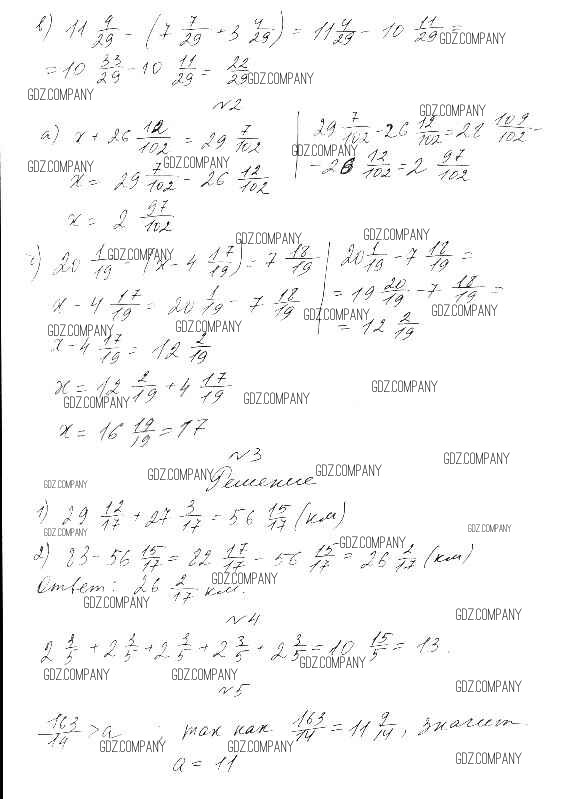 в) 11 9/29 - (7 7/29 + 3 4/29) = 11 4/29 - 10 11/29 =
GDZ.COMPANY
= 10 33/29 - 10 11/29 = 22/29
GDZ.COMPANY
GDZ.COMPANY
№2
GDZ.COMPANY
а) x + 26 12/102 = 29 7/102
29 7/102 - 26 12/102 = 28 109/102 -
GDZ.COMPANY
GDZ.COMPANY
GDZ.COMPANY
- 26 12/102 = 2 97/102
x = 29 7/102 - 26 12/102
x = 2 97/102
GDZ.COMPANY
GDZ.COMPANY
20 1/19 - (x - 4 17/19) = 7 18/19
20 1/19 - 7 18/19 =
GDZ.COMPANY
x - 4 17/19 = 20 1/19 - 7 18/19
= 19 20/19 - 7 18/19 =
GDZ.COMPANY
GDZ.COMPANY
= 12 2/19
GDZ.COMPANY
GDZ.COMPANY
x - 4 17/19 = 12 2/19
x = 12 2/19 + 4 17/19
GDZ.COMPANY
GDZ.COMPANY
GDZ.COMPANY
x = 16 19/19 = 17
№3
GDZ.COMPANY
Решение
GDZ.COMPANY
GDZ.COMPANY
GDZ.COMPANY
1) 29 12/17 + 27 3/17 = 56 15/17 (км)
GDZ.COMPANY
GDZ.COMPANY
GDZ.COMPANY
2) 83 - 56 15/17 = 82 17/17 - 56 15/17 = 26 2/17 (км)
GDZ.COMPANY
Ответ: 26 2/17 км.
GDZ.COMPANY
№4
GDZ.COMPANY
2 3/5 + 2 3/5 + 2 3/5 + 2 3/5 + 2 3/5 = 10 15/5 = 13.
GDZ.COMPANY
GDZ.COMPANY
GDZ.COMPANY
№5
GDZ.COMPANY
163/14 > a ; так как 163/14 = 11 9/14, значит
GDZ.COMPANY
GDZ.COMPANY
a = 11
GDZ.COMPANY